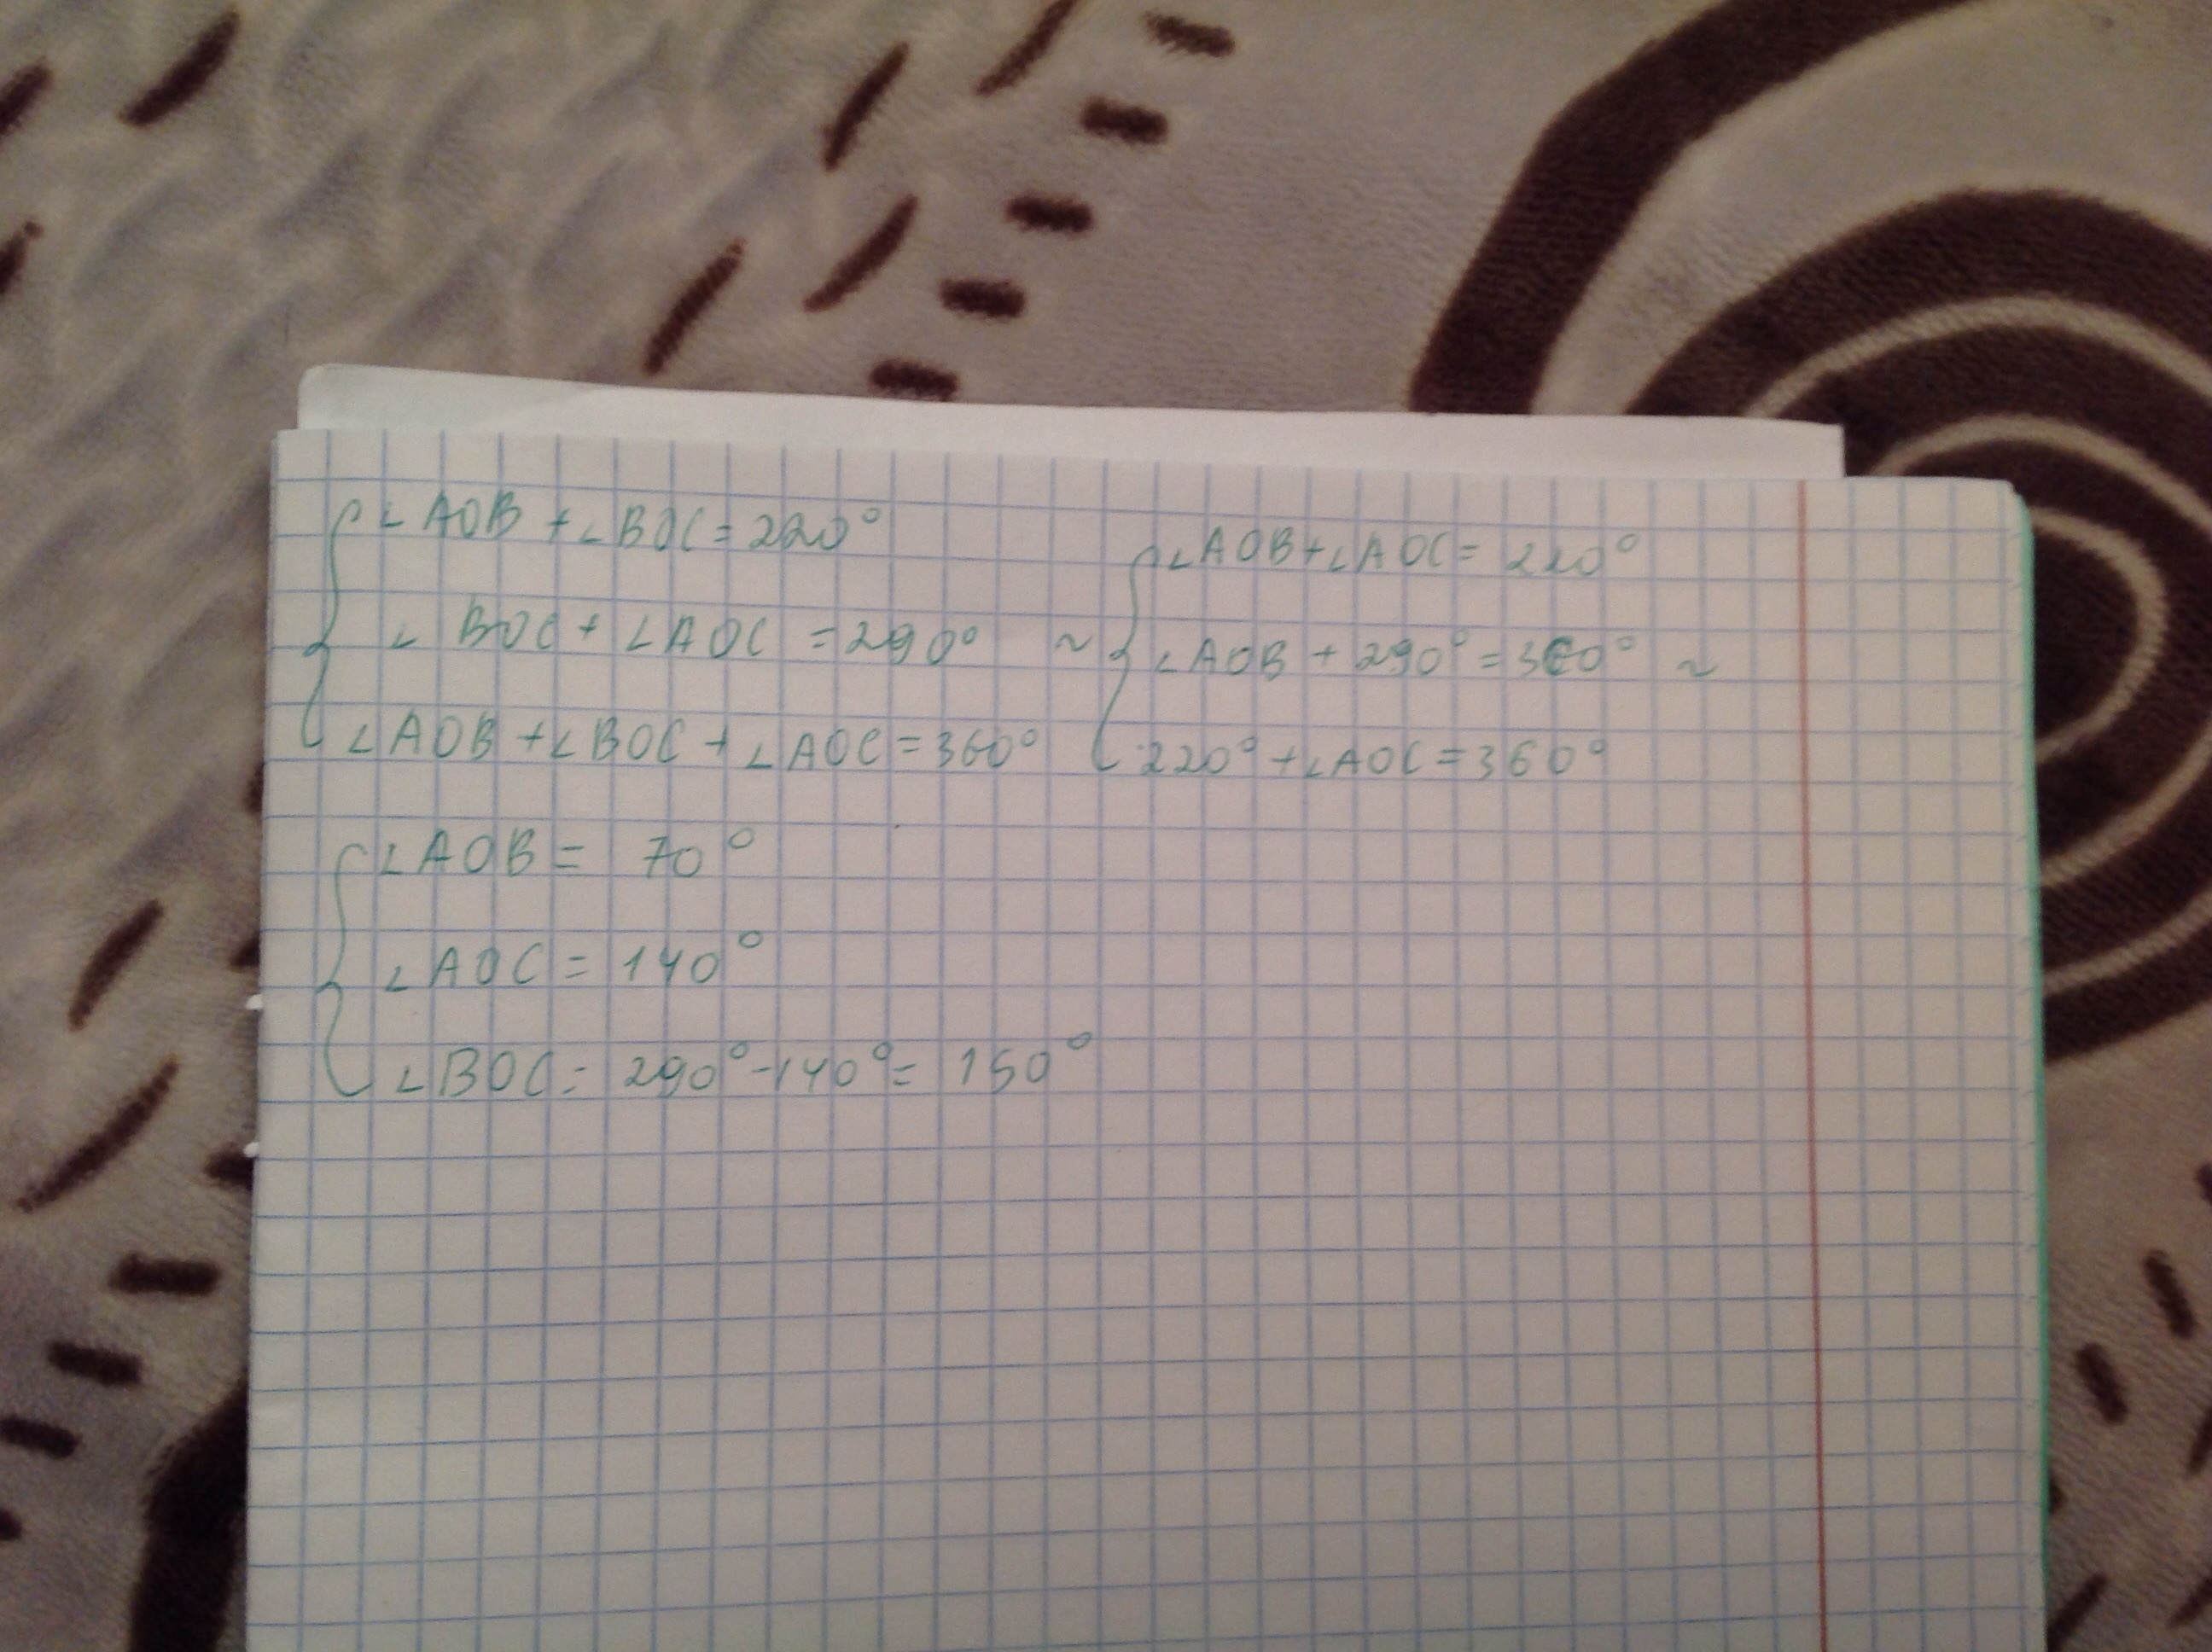 ∠AOB + ∠BOC = 220°
∠BOC + ∠AOC = 290° ~
∠AOB + ∠BOC + ∠AOC = 360°
∠AOB + ∠AOC = 220°
∠AOB + 290° = 360° ~
220° + ∠AOC = 360°
∠AOB = 70°
∠AOC = 140°
∠BOC = 290° - 140° = 150°